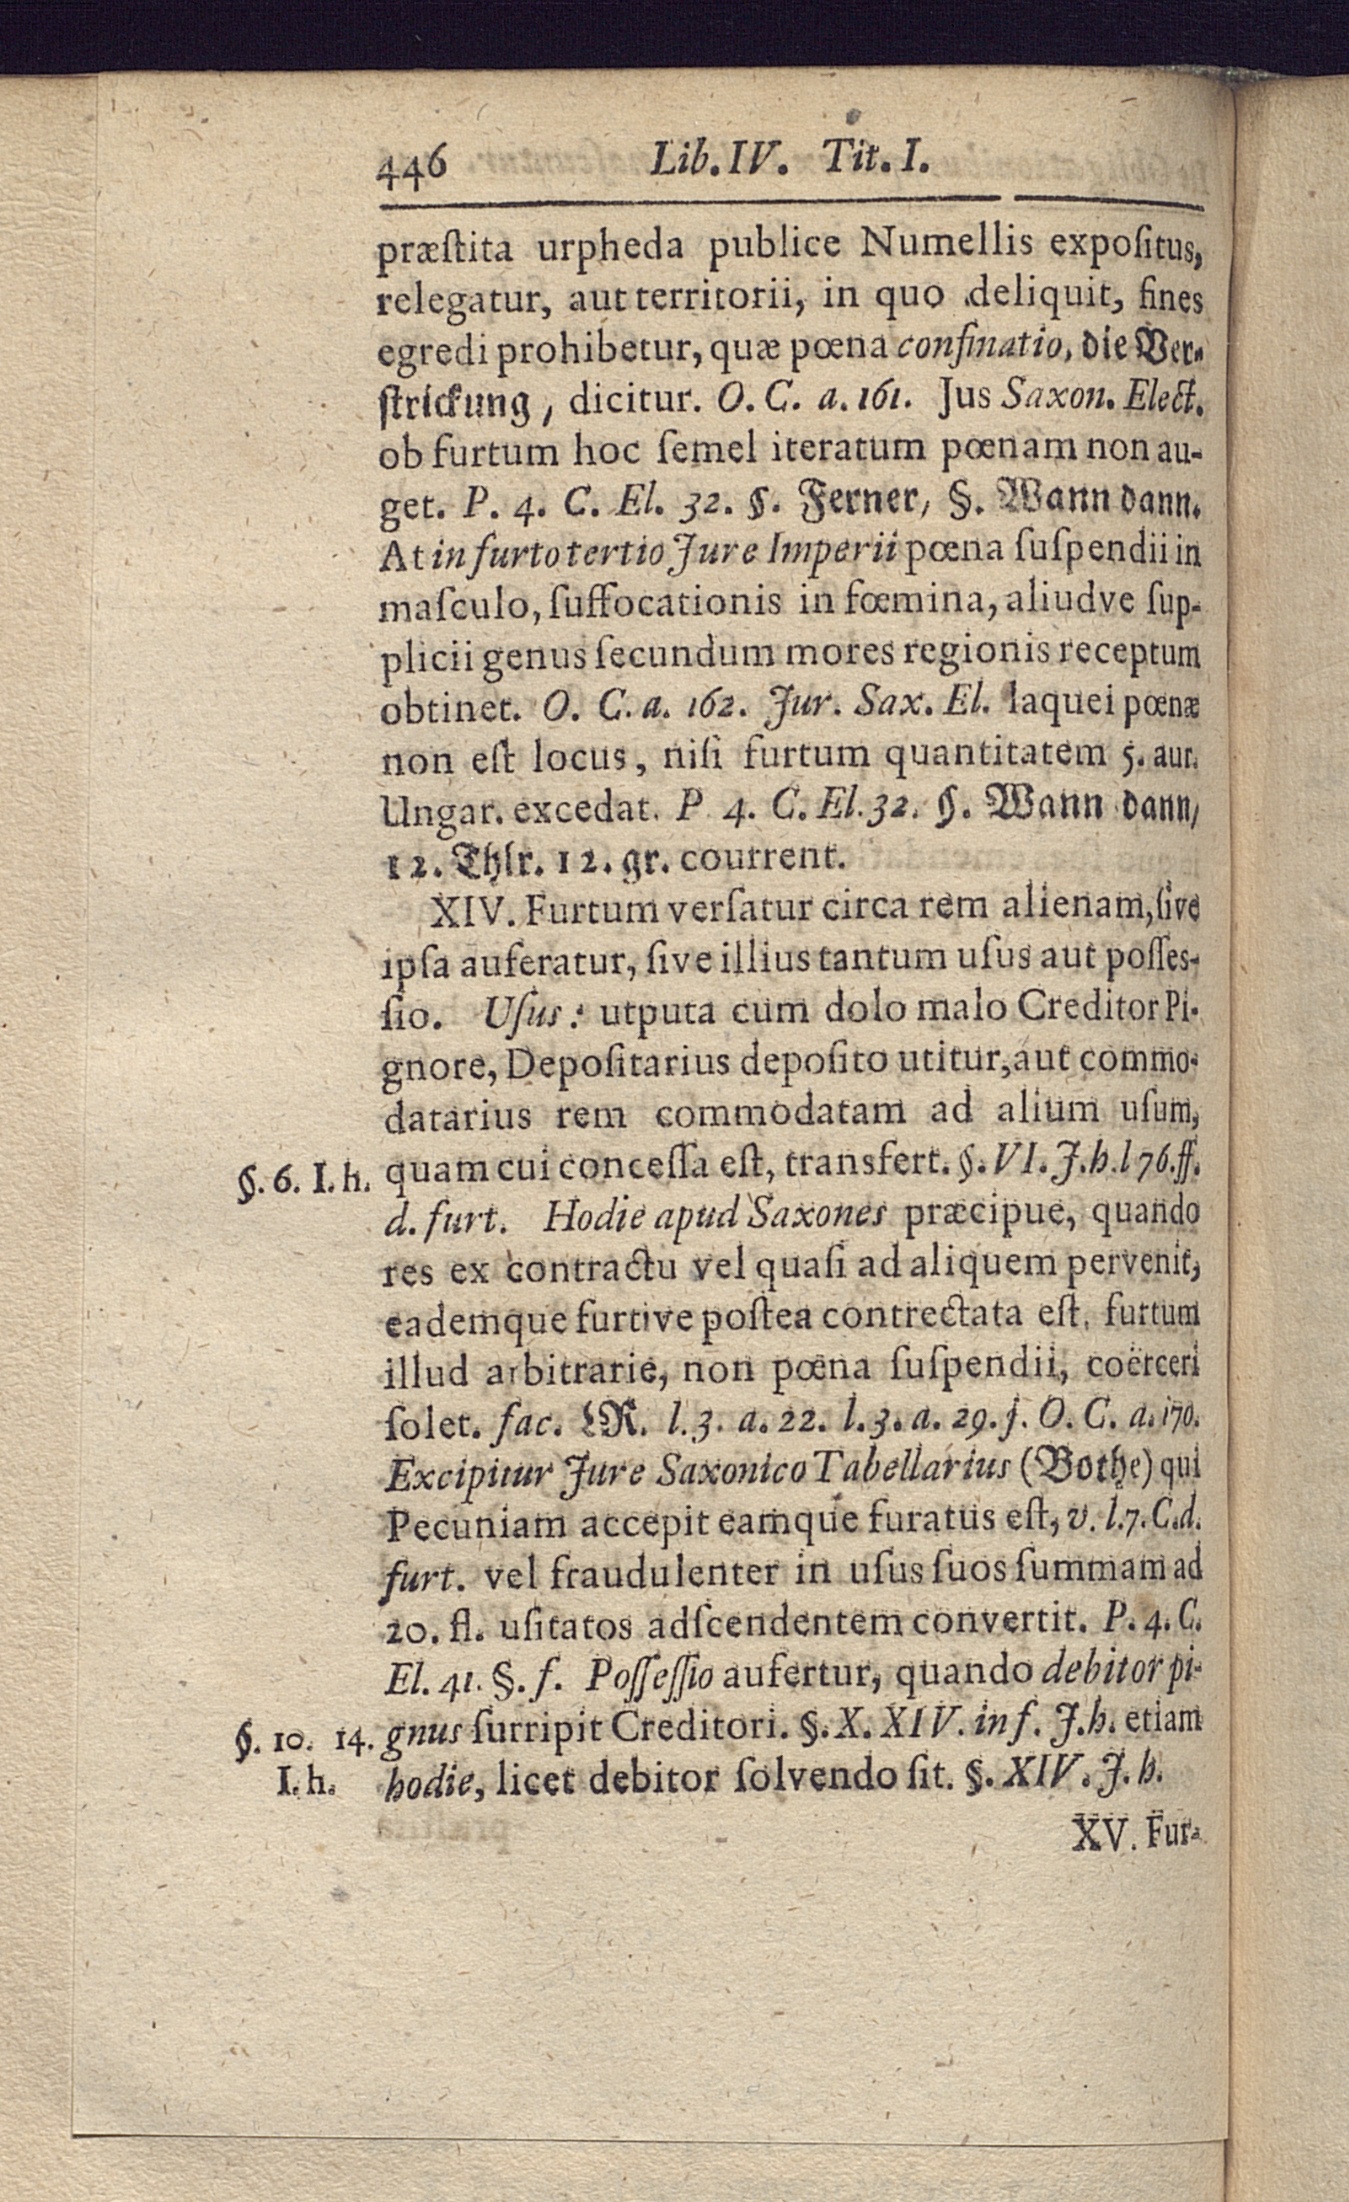 446 Lib. IV. Tit. I.
præſtita urpheda publice Numellis expoſitus,
relegatur, aut territorii, in quo deliquit, fines
egredi prohibetur, quæ pœna confinatio, die Ver-
ſtrickung, dicitur. O. C. a. 161. Jus Saxon. Elect.
ob furtum hoc ſemel iteratum pœnam non au-
get. P. 4. C. El. 32. §. Ferner, §. Wann dann.
At in furto tertio Jure Imperii pœna ſuſpendii in
maſculo, ſuffocationis in fœmina, aliudve ſup-
plicii genus ſecundum mores regionis receptum
obtinet. O. C. a. 162. Jur. Sax. El. laquei pœnæ
non eſt locus, niſi furtum quantitatem 5. aur.
Ungar. excedat. P. 4. C. El. 32. §. Wann dann,
12. Thlr. 12. gr. courrent.
XIV. Furtum verſatur circa rem alienam, ſive
ipſa auferatur, ſive illius tantum uſus aut poſſeſ-
ſio. Uſus: utputa cum dolo malo Creditor Pi-
gnore, Depoſitarius depoſito utitur, aut commo-
datarius rem commodatam ad alium uſum,
§. 6. I. h. quam cui conceſſa eſt, transfert. §. VI. J. h. l 76. ff.
d. furt. Hodie apud Saxones præcipue, quando
res ex contractu vel quaſi ad aliquem pervenit,
eademque furtive poſtea contrectata eſt, furtum
illud arbitrarie, non pœna ſuſpendii, coërceri
ſolet. fac. LR. l. 3. a. 22. l. 3. a. 29. j. O. C. a. 170.
Excipitur Jure Saxonico Tabellarius (Bothe) qui
Pecuniam accepit eamque furatus eſt, v. l. 7. C. d.
furt. vel fraudulenter in uſus ſuos ſummam ad
20. fl. uſitatos adſcendentem convertit. P. 4. C.
El. 41. §. f. Poſſeſſio aufertur, quando debitor pi-
§. 10. 14. gnus ſurripit Creditori. §. X. XIV. in f. J. h. etiam
I. h. hodie, licet debitor ſolvendo ſit. §. XIV. J. h.
XV. Fur-